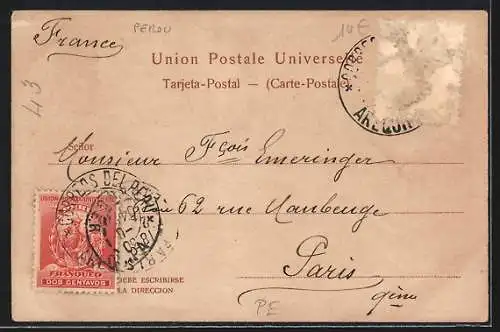 PEROU
10E
(France)
Union Postale Universel
Tarjeta-Postal — (Carte-Postale
CORREOS
AREQUIPA
43
Señor
Monsieur Fçois Emeringer
62 rue Maubeuge
Paris
9ème
CORREOS DEL PERU
FRANQUEO
DOS CENTAVOS
DEBE ESCRIBIRSE
LA DIRECCION
PE